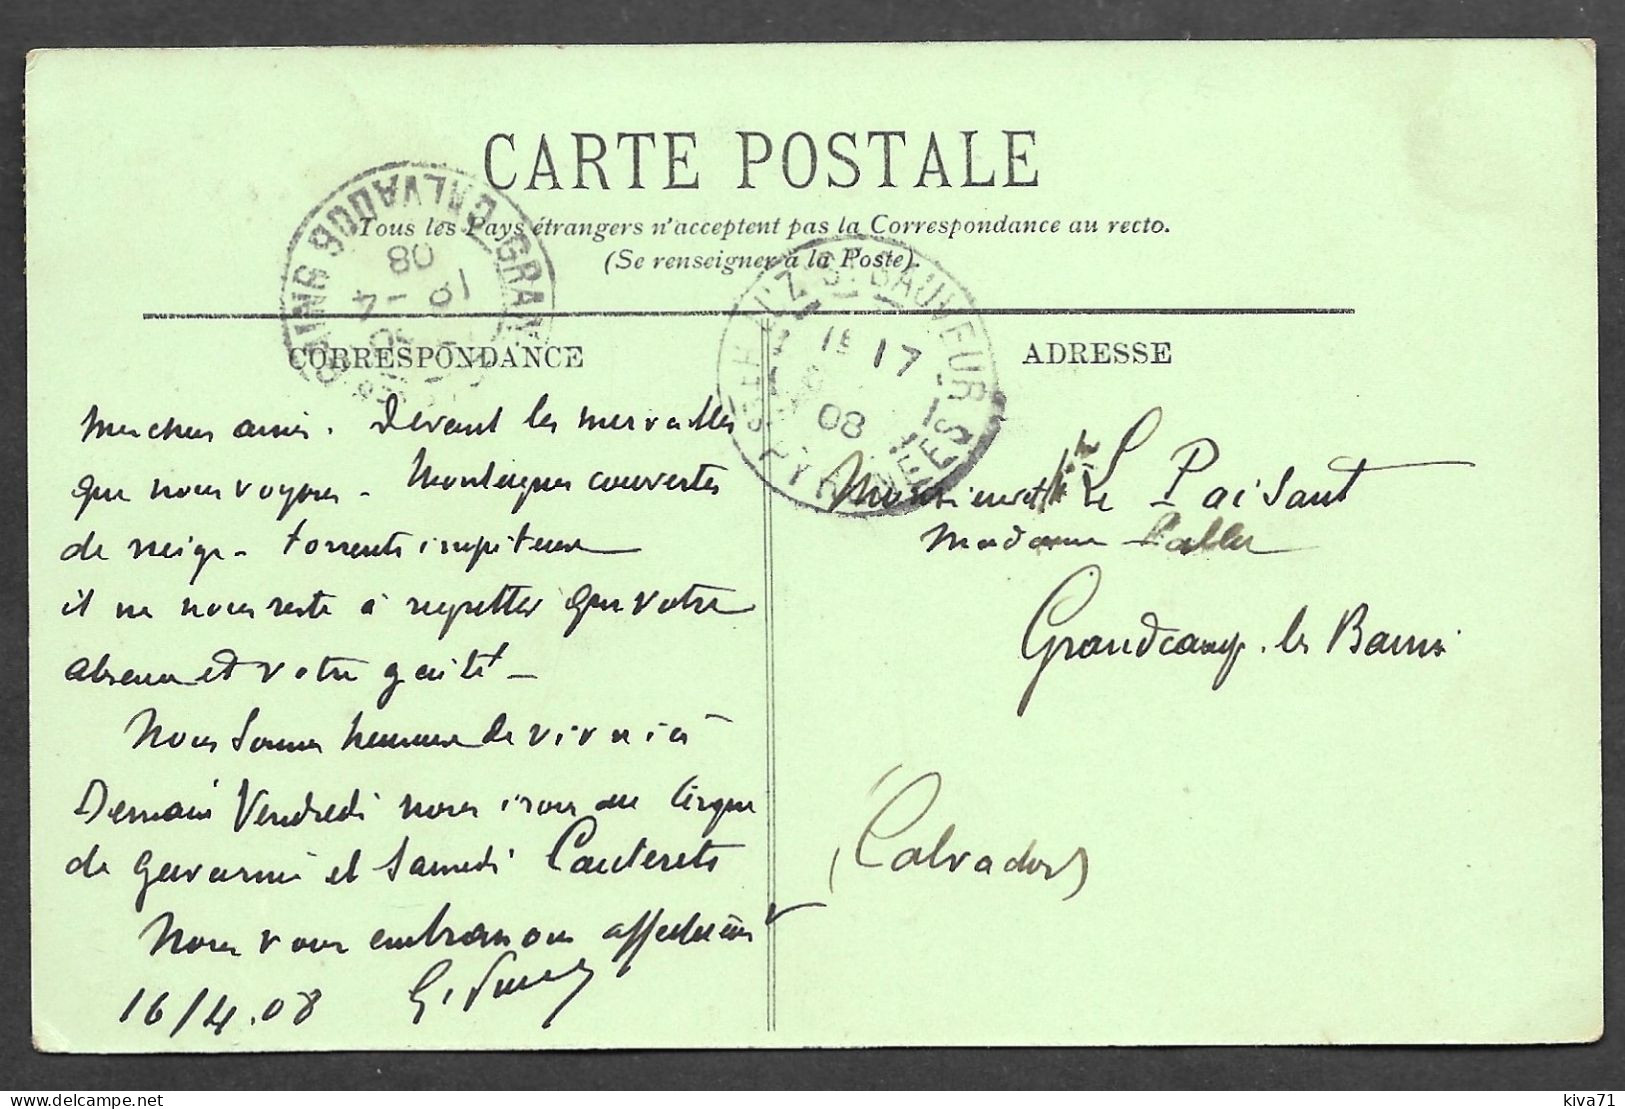 CARTE POSTALE
Tous les Pays étrangers n'acceptent pas la Correspondance au recto.
(Se renseigner à la Poste).
CORRESPONDANCE
ADRESSE
GRAN CALVADOS
08
LUZ ST SAUVEUR
17
08
PYRENEES
Mes chers amis. Devant les merveilles
que nous voyons - Montagnes couvertes
de neige - torrents impétueux
il ne nous reste à regretter que votre
absence et votre gaité -
Nous sommes heureux de vivre ici
Demain Vendredi nous irons au Cirque
de Gavarnie et Samedi Cauterets
Nous vous embrassons affectueus
16/4.08 G.
Monsieur et Le Paisant
Madame
Grandcamp. les Bains
(Calvados)
Delcampe.net
kiva71